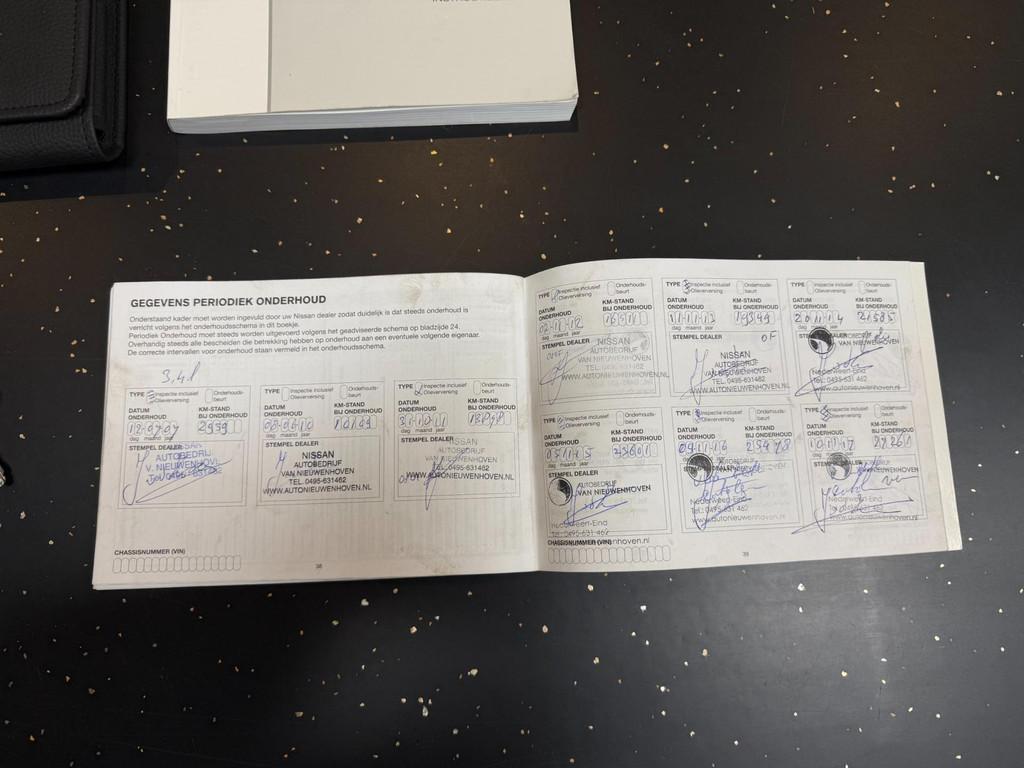 GEGEVENS PERIODIEK ONDERHOUD
Onderstaand kader moet worden ingevuld door uw Nissan dealer zodat duidelijk is dat steeds onderhoud is
verricht volgens het onderhoudsschema in dit boekje.
Periodiek Onderhoud moet steeds worden uitgevoerd volgens het geadviseerde schema op bladzijde 24.
Overhandig steeds alle bescheiden die betrekking hebben op onderhoud aan een eventuele volgende eigenaar.
De correcte intervallen voor onderhoud staan vermeld in het onderhoudsschema.
3,4l
TYPE Inspectie inclusief Olieverversing Onderhouds-beurt
DATUM ONDERHOUD KM-STAND BIJ ONDERHOUD
dag maand jaar
STEMPEL DEALER
AUTOBEDRIJ
V. NIEUWENHOVE
TYPE Inspectie inclusief Olieverversing Onderhouds-beurt
DATUM ONDERHOUD KM-STAND BIJ ONDERHOUD
dag maand jaar
STEMPEL DEALER
NISSAN
AUTOBEDRIJF
VAN NIEUWENHOVEN
TEL. 0495-631462
WWW.AUTONIEUWENHOVEN.NL
TYPE Inspectie inclusief Olieverversing Onderhouds-beurt
DATUM ONDERHOUD KM-STAND BIJ ONDERHOUD
31 10 11
dag maand jaar
STEMPEL DEALER
NISSAN
AUTOBEDRIJF
VAN NIEUWENHOVEN
TEL. 0495-631462
CHASSISNUMMER (VIN)
38
TYPE Inspectie inclusief Olieverversing Onderhouds-beurt
DATUM ONDERHOUD KM-STAND BIJ ONDERHOUD
02 11 12
dag maand jaar
STEMPEL DEALER
NISSAN
AUTOBEDRIJF
VAN NIEUWENHOVEN
TEL. 0495-631462
WWW.AUTONIEUWENHOVEN.NL
TYPE Inspectie inclusief Olieverversing Onderhouds-beurt
DATUM ONDERHOUD KM-STAND BIJ ONDERHOUD
11 11 13 19349
dag maand jaar
STEMPEL DEALER
OF
NISSAN
AUTOBEDRIJF
VAN NIEUWENHOVEN
TEL. 0495-631462
WWW.AUTONIEUWENHOVEN.NL
TYPE Inspectie inclusief Olieverversing Onderhouds-beurt
DATUM ONDERHOUD KM-STAND BIJ ONDERHOUD
20 11 14 21585
dag maand jaar
STEMPEL DEALER
AUTOBEDRIJF
VAN NIEUWENHOVEN
Nederweert-Eind
Tel.: 0495-631 462
www.autonieuwenhoven.nl
TYPE Inspectie inclusief Olieverversing Onderhouds-beurt
DATUM ONDERHOUD KM-STAND BIJ ONDERHOUD
05 11 15 23601
dag maand jaar
STEMPEL DEALER
AUTOBEDRIJF
VAN NIEUWENHOVEN
Nederweert-Eind
Tel.: 0495-631 462
TYPE Inspectie inclusief Olieverversing Onderhouds-beurt
DATUM ONDERHOUD KM-STAND BIJ ONDERHOUD
09 11 16 25478
dag maand jaar
STEMPEL DEALER
Nederweert-Eind
Tel.: 0495-631 462
www.autonieuwenhoven.nl
TYPE Inspectie inclusief Olieverversing Onderhouds-beurt
DATUM ONDERHOUD KM-STAND BIJ ONDERHOUD
10 11 17 27261
dag maand jaar
STEMPEL DEALER
Nederweert-Eind
www.autonieuwenhoven.nl
CHASSISNUMMER (VIN)
39